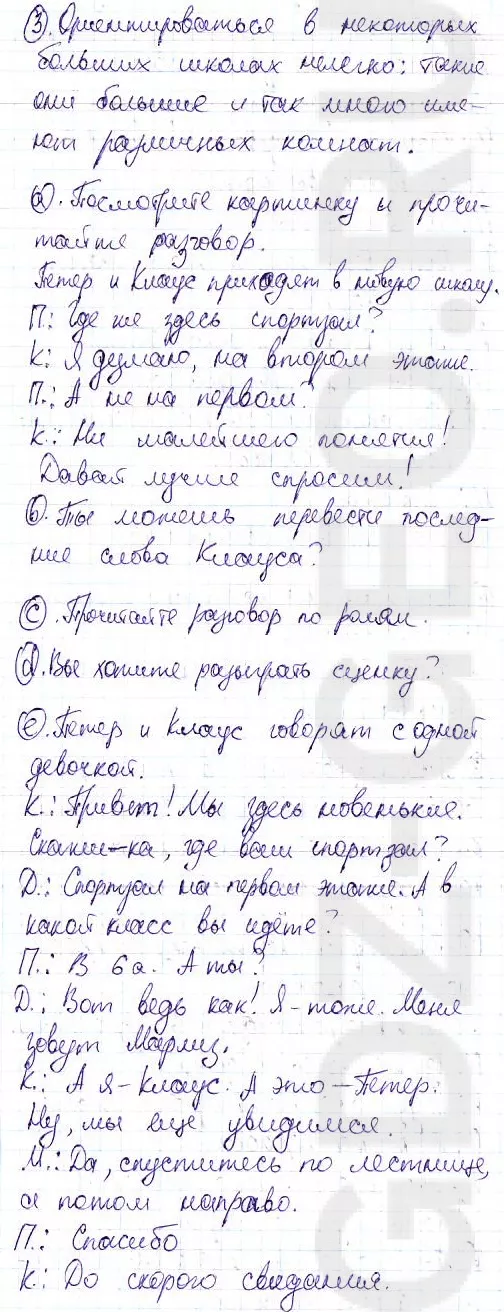 ③. Ориентироваться в некоторых
больших школах нелегко: такие
они большие и так много име-
ют различных комнат.
ⓐ. Посмотрите картинку и прочи-
тайте разговор.
Петер и Клаус приходят в новую школу.
П: Где же здесь спортзал?
К: Я думаю, на втором этаже.
П.: А не на первом?
К.: Ни малейшего понятия!
Давай лучше спросим!
ⓑ. Ты можешь перевести послед-
ние слова Клауса?
ⓒ. Прочитайте разговор по ролям.
ⓓ. Вы хотите разыграть сценку?
ⓔ. Петер и Клаус говорят с одной
девочкой.
К.: Привет! Мы здесь новенькие.
Скажи-ка, где ваш спортзал?
Д.: Спортзал на первом этаже. А в
какой класс вы идёте?
П.: В 6а. А ты?
Д.: Вот ведь как! Я - тоже. Меня
зовут Марлиз.
К.: А я - Клаус. А это - Петер.
Ну, мы еще увидимся.
М.: Да, спуститесь по лестнице,
а потом направо.
П.: Спасибо
К.: До скорого свидания.
GDZ-GEO.RU